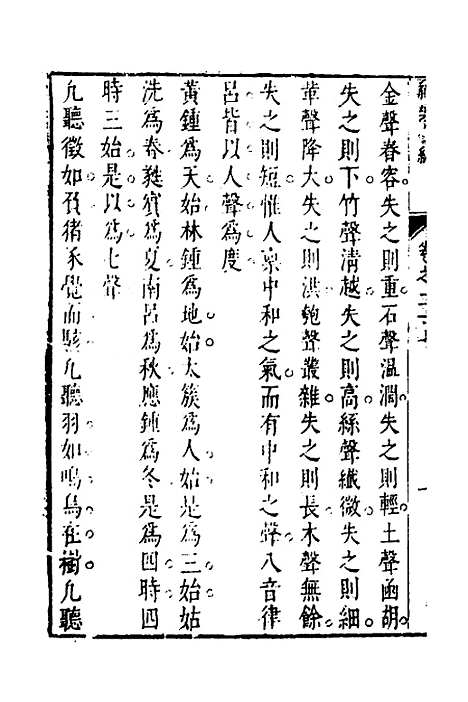 金聲舂容失之則重石聲温潤失之則輕土聲函胡
失之則下竹聲清越失之則高絲聲纖微失之則細
革聲降大失之則洪匏聲叢雜失之則長木聲無餘
失之則短惟人禀中和之氣而有中和之聲八音律
呂皆以人聲爲度
黃鍾爲天始林鍾爲地始太簇爲人始是爲三始姑
洗爲春蕤賓爲夏南呂爲秋應鍾爲冬是爲四時四
時三始是以爲七聲
凡聽徵如負豬豕覺而駭凡聽羽如鳴鳥在樹凡聽